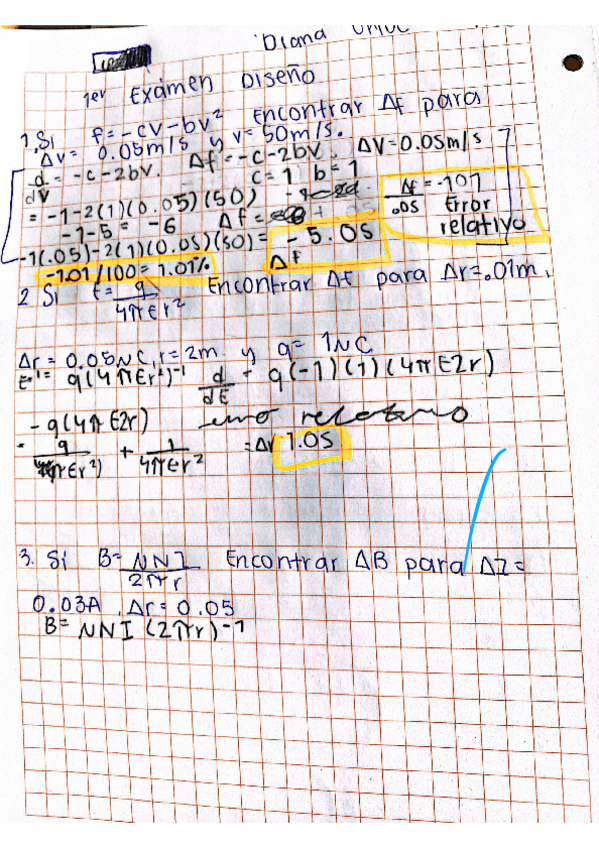 Diana
1er Exámen Diseño
1. Si f = -cv - bv² Encontrar Δf para
Δv = 0.05m/s y v = 50m/s.
d/dv = -c - 2bv. Δf = -c - 2bv. Δv = 0.05m/s
c = 1 b = 1
= -1 - 2(1)(0.05)(50)
-1 - 5 = -6 Δf =
-1(.05) - 2(1)(0.05)(50) = -5.05
Δf
-1.01/100 = 1.01%
Δf/.05 = -101
Error
relativo
2. Si E = q/4πεr² Encontrar ΔE para Δr = .01m,
Δr = 0.05NC, r = 2m. y q = 1NC
E = q(4πεr²)-1 d/dE = q(-1)(1)(4πE2r)
-q(4πE2r) error relativo
q/4πεr²) + 1/4πεr² = Δr 1.05
3. Si B = NNI/2πr Encontrar ΔB para ΔI =
0.03A, Δr = 0.05
B = NNI (2πr)-1